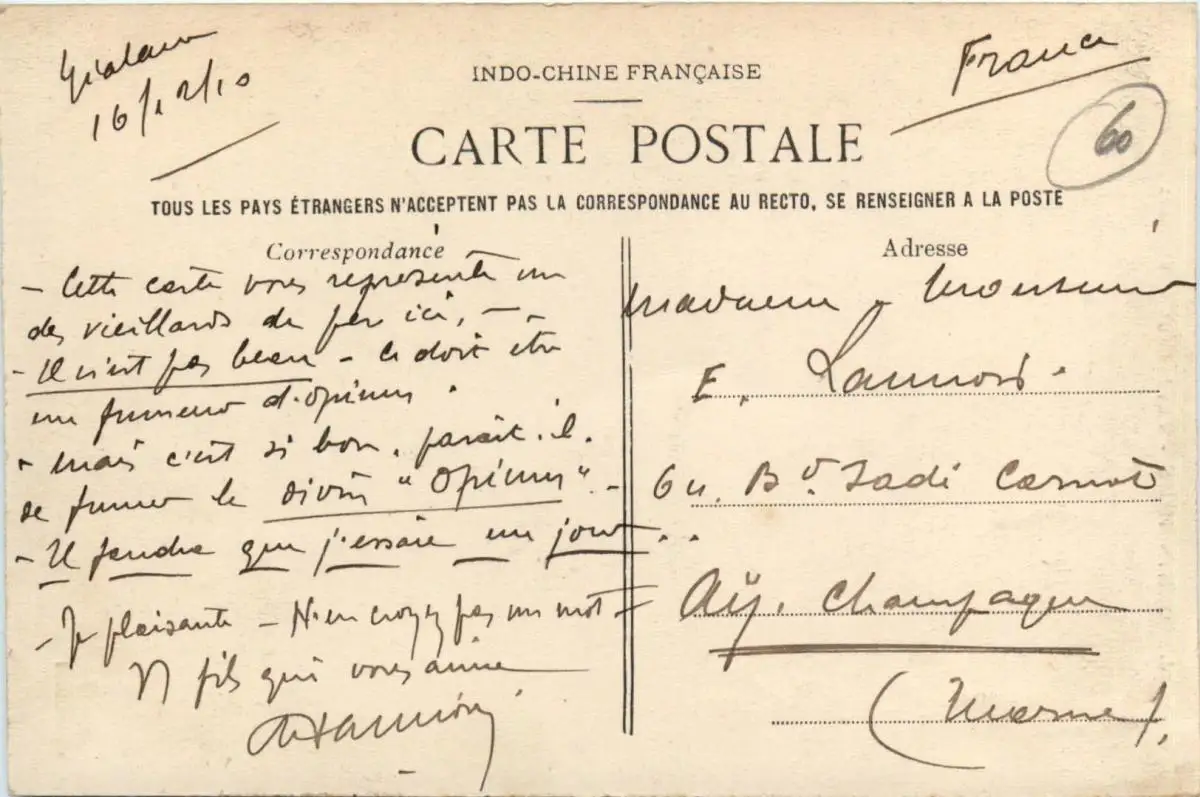 16/12/10
France
60
INDO-CHINE FRANÇAISE
CARTE POSTALE
TOUS LES PAYS ÉTRANGERS N'ACCEPTENT PAS LA CORRESPONDANCE AU RECTO, SE RENSEIGNER A LA POSTE
Correspondance
- Cette carte vous représente un
des vieillards de par ici, -
- Il n'est pas beau - ce doit être
un fumeur d'opium.
- Mais c'est si bon, paraît-il.
de fumer le divin "Opium". -
- Il faudra que j'essaie un jour...
- Je plaisante - N'en croyez pas un mot -
V fils qui vous aime
Adresse
Madame & Monsieur
E. Lannois.
64. Bd. Sadi Carnot
Aÿ. Champagne
(Marne).